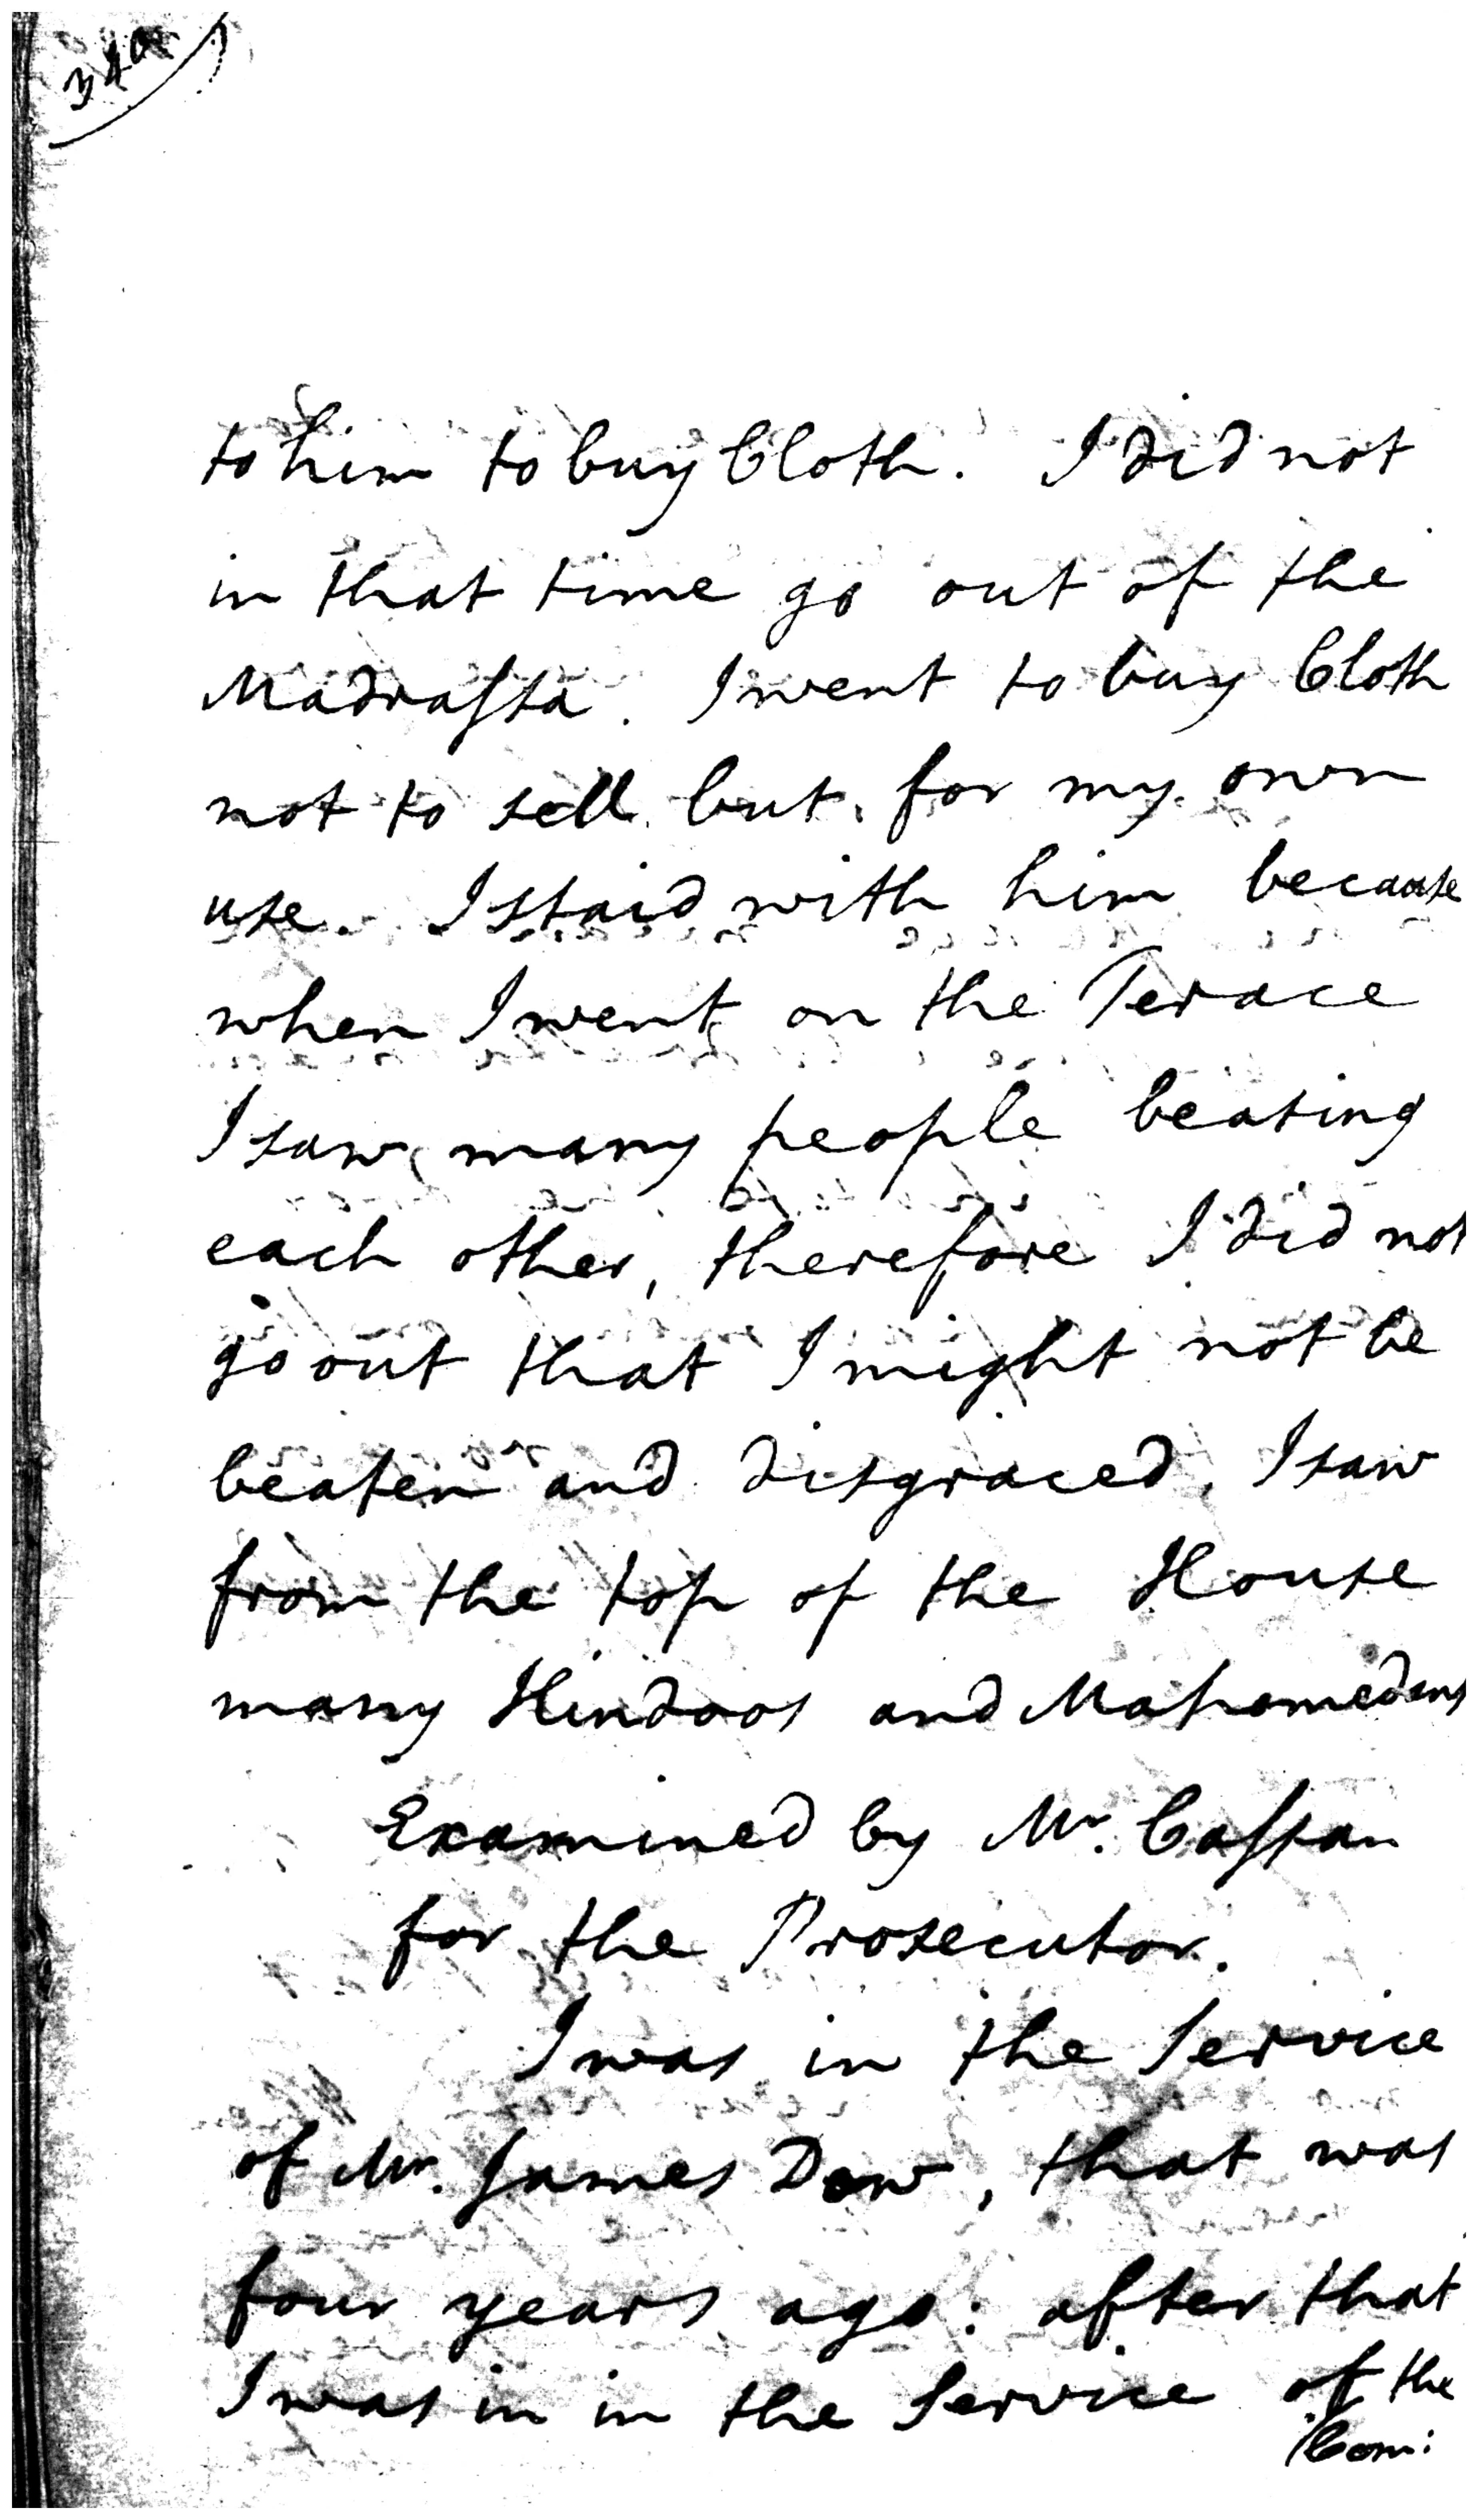 340
to him to buy Cloth. I did not
in that time go out of the
Madrassa. I went to buy Cloth
not to sell but for my own
use. I staid with him because
when I went on the Terace
I saw many people beating
each other, therefore I did not
go out that I might not be
beaten and disgraced. I saw
from the top of the House
many Hindoos and Mahomedans
Examined by Mr. Cassan
for the Prosecutor.
I was in the Service
of Mr. James Dow, that was
four years ago: after that
I was in in the Service of the
Com: